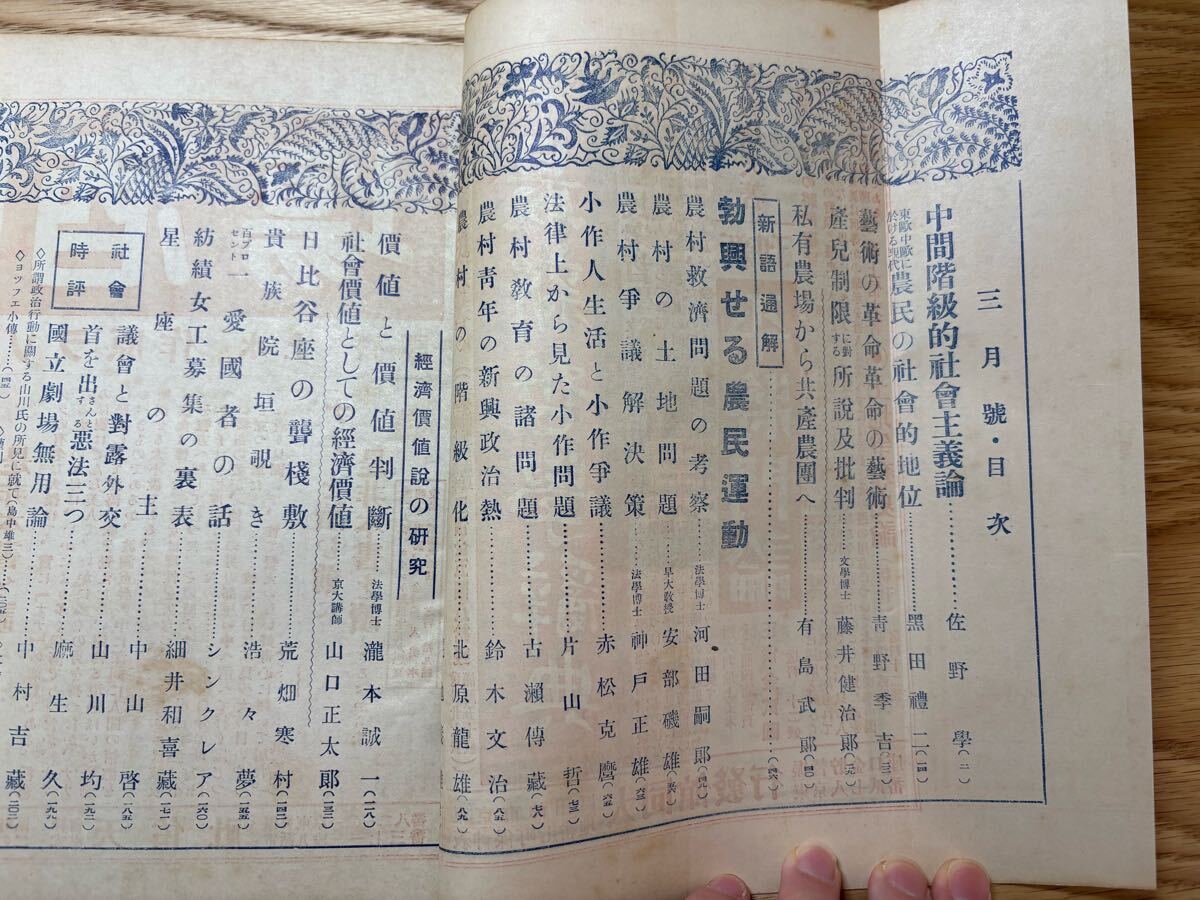 三月號・目次
中間階級的社會主義論……佐野學(二)
東歐中歐に於ける現代農民の社會的地位……黑田禮二(一四)
藝術の革命革命の藝術……靑野季吉(三二)
產兒制限に對する所說及批判……文學博士 藤井健治郞(三九)
私有農場から共產農團へ……有島武郞(四〇)
新語通解……(四六)
勃興せる農民運動
農村救濟問題の考察……法學博士 河田嗣郞(四九)
農村の土地問題……早大敎授 安部磯雄(五六)
農村爭議解決策……法學博士 神戶正雄(六三)
小作人生活と小作爭議……赤松克麿(六五)
法律上から見た小作問題……片山哲(七三)
農村敎育の諸問題……古瀨傳藏(七八)
農村靑年の新興政治熱……鈴木文治(八五)
農村の階級化……北原龍雄(八九)
經濟價値說の硏究
價値と價値判斷……法學博士 瀧本誠一(一一八)
社會價値としての經濟價値……京大講師 山口正太郞(一三三)
日比谷座の聾棧敷……荒畑寒村(一四二)
貴族院垣覗き……浩々夢(一五五)
百プロセント愛國者の話……シンクレア(一六〇)
紡績女工募集の裏表……細井和喜藏(一七一)
星座の主……中山啓(一八五)
社會時評
議會と對露外交……山川均(一九二)
首を出さんとする惡法三つ……麻生久(一九九)
國立劇場無用論……中村吉藏(二〇二)
◇所謂政治行動に關する山川氏の所見に就て(島中雄三)
◇ヨツフエ小傳……(四五)